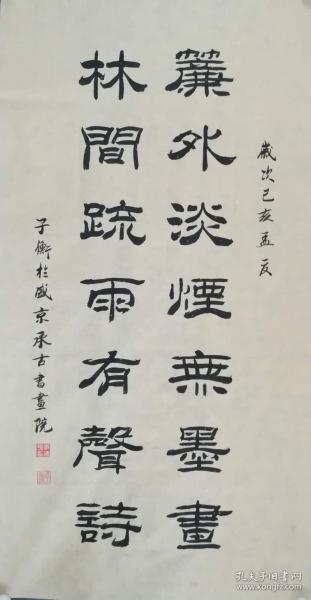 歲次己亥孟夏
簾外淡煙無墨畫
林間疏雨有聲詩
子衡於盛京承古書畫院
孔夫子旧书网
kongfz.com